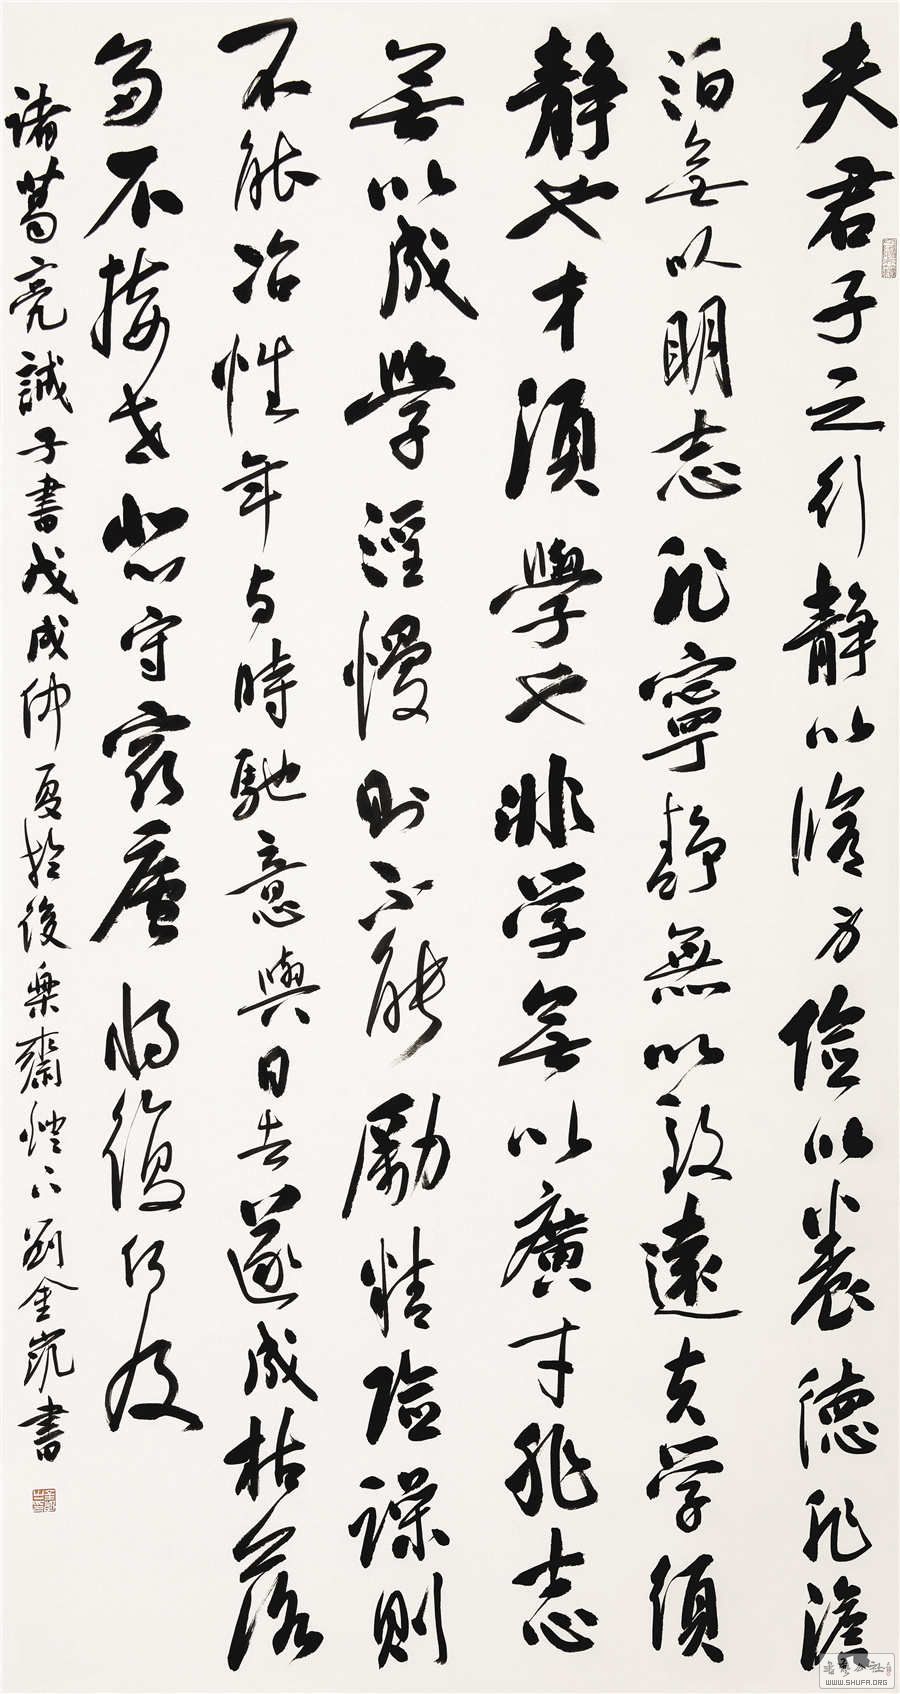 夫君子之行靜以脩身儉以養德非澹
泊無以明志非寧靜無以致遠夫學須
靜也才須學也非學無以廣才非志
無以成學淫慢則不能勵精險躁則
不能冶性年与時馳意與日去遂成枯落
多不接世悲守窮廬將復何及
諸葛亮誡子書戊戌仲夏於後樂齋燈下劉金凱書
WWW.SHUFA.ORG